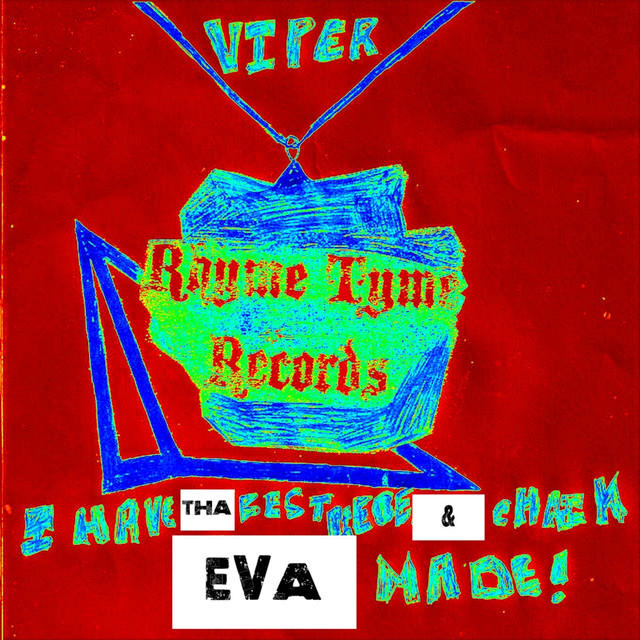 VIPER
Rhyme Tyme
Records
I HAVE THA BEST PIECE & CHAIN
EVA MADE!